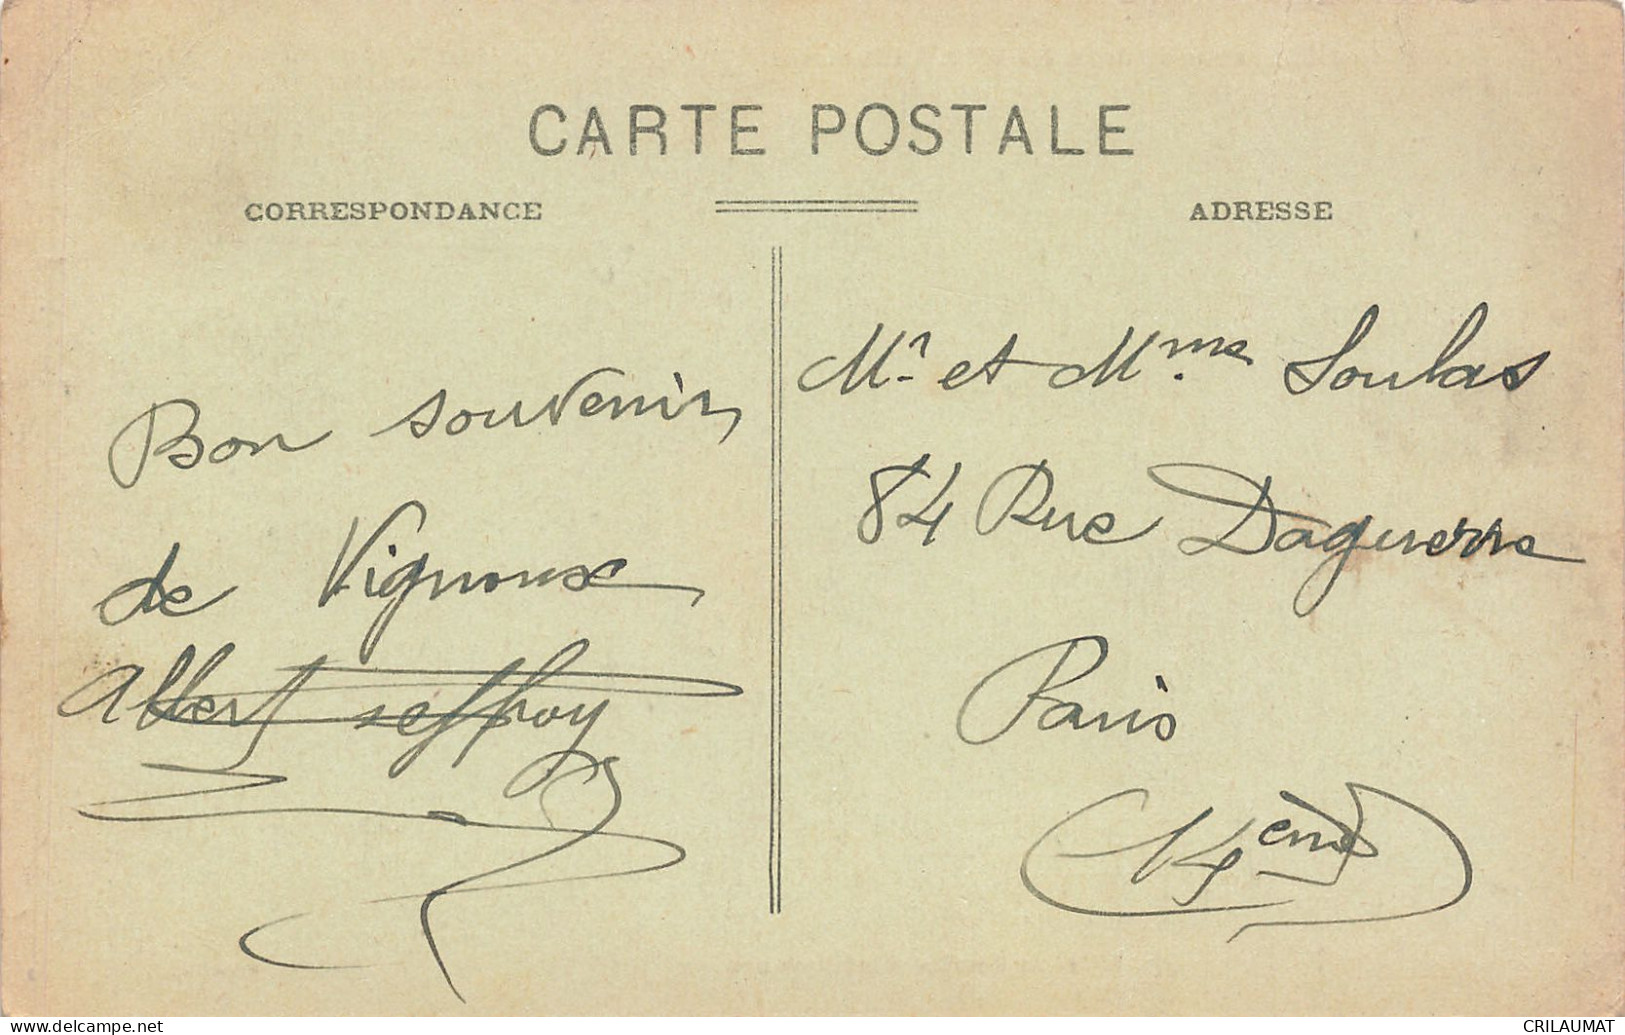 CARTE POSTALE
CORRESPONDANCE
ADRESSE
Bon souvenir
de Vignoux
Albert Jeffroy
Mr et Mme Soulas
84 Rue Daguerre
Paris
14ème
www.delcampe.net
CRILAUMAT